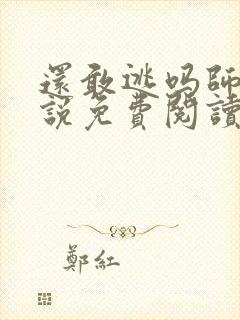 還敢逃吗師
說免費閱讀
鄭紅